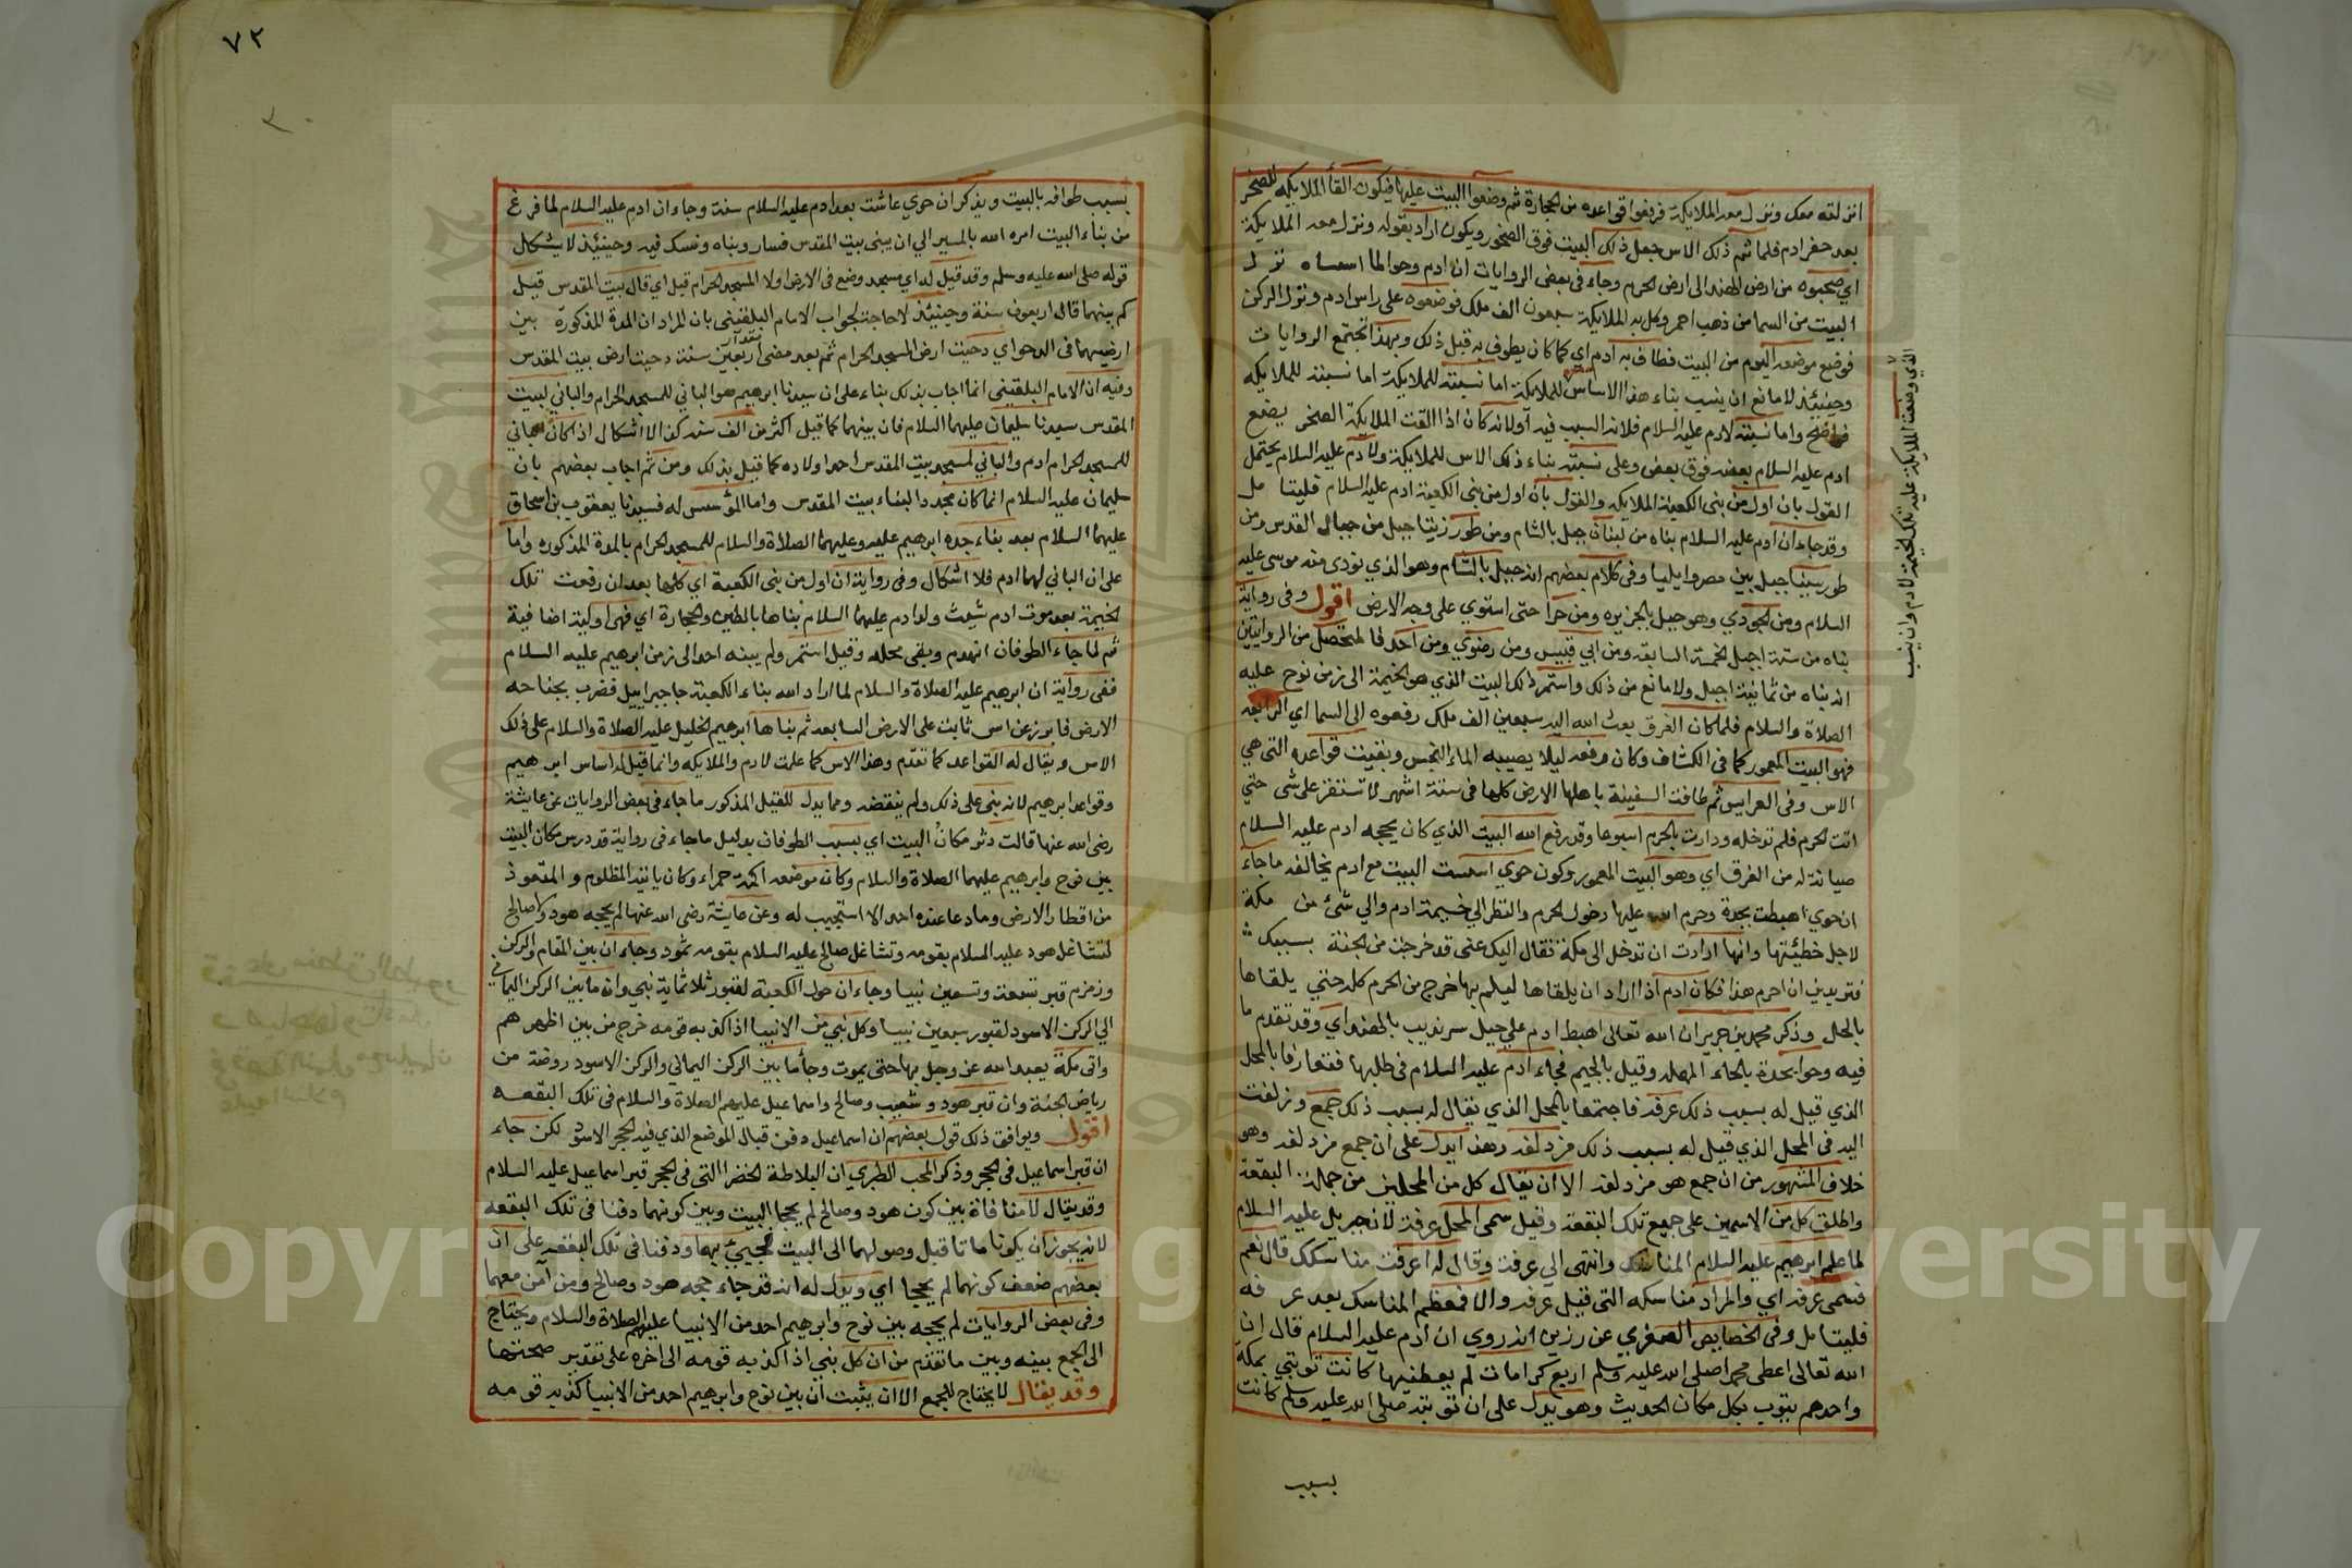 انزلته معك ونزل معه الملايكة فرفعوا قواعده من الحجارة ثم وضعوا البيت عليها فيكون القأ الملايكه للصخر
بعد حفر ادم فلما تم ذلك الاس جعل ذلك البيت فوق الصخور ويكون اراد بقوله ونزل معه الملايكة
اي صحبوه من ارض الهند الى ارض الحرم وجاء في بعض الروايات ان ادم وحوا لما اسساه نزل
البيت من السما من ذهب احمر وكل به الملايكة سبعون الف ملك فوضعوه على راس ادم ونزل الركن
فوضع موضعه اليوم من البيت فطاف به ادم اي كما كان يطوف به قبل ذلك وبهذا تجتمع الروايات
وحينئذ لا مانع ان ينسب بناء هذا الاساس للملايكة اما نسبته للملايكة اما نسبته للملايكه
فواضح واما نسبته لادم عليه السلام فلانه السبب فيه اولانه كان اذا القت الملايكة الصخر يضع
ادم عليه السلام بعضه فوق بعض وعلى نسبة بناء ذلك الاس للملايكة ولادم عليه السلام يحتمل
القول بان اول من بنى الكعبة الملايكه والقول بان اول من بنى الكعبة ادم عليه السلام فليتامل
وقد جاء ان ادم عليه السلام بناه من لبنان جبل بالشام ومن طور زيتا جبل من جبال القدس ومن
طور سينا جبل بين مصر وايليا وفى كلام بعضهم انه جبل بالشام وهو الذي نودى منه موسى عليه
السلام ومن الجودي وهو جبل بالجزيره ومن حرا حتى استوي على وجه الارض اقول وفى رواية
بناه من ستة اجبل الخمسة السابقه ومن ابي قبيس ومن رضوى ومن احد فالمتحصل من الروايتين
انه بناه من ثمانية اجبل ولا مانع من ذلك واستمر ذلك البيت الذي هو الخيمة الى زمن نوح عليه
الصلاة والسلام فلما كان الغرق بعث الله اليه سبعين الف ملك رفعوه الى السما اي الرابعه
فهو البيت المعمور كما في الكشاف وكان رفعه ليلا يصيبه الماء النجس وبقيت قواعده التى هي
الاس وفى العرايس ثم طافت السفينة باهلها الارض كلها فى ستة اشهر لا تستقر على شى حتي
اتت الحرم فلم تدخله ودارت بالحرم اسبوعا وقد رفع الله البيت الذي كان يحجه ادم عليه السلام
صيانة له من الغرق اي وهو البيت المعمور وكون حوي اسست البيت مع ادم يخالفه ما جاء
ان حوي اهبطت بجدة وحرم الله عليها دخول الحرم والنظر الي خيمة ادم والي شئ من مكة
لاجل خطيئتها وانها ارادت ان تدخل الى مكة فقال اليك عني قد خرجت من الجنة بسببك
فتريدين ان احرم هذا فكان ادم اذا اراد ان يلقاها ليلم بها خرج من الحرم كله حتى يلقاها
بالحل وذكر محمد بن جرير ان الله تعالى اهبط ادم على جبل سرنديب بالهند اي وقد تقدم ما
فيه وحوا بجدة بالحاء المهمله وقيل بالجيم فجاء ادم عليه السلام فى طلبها فتعارفا بالمحل
الذي قيل له بسبب ذلك عرفه فاجتمعا بالمحل الذي يقال له بسبب ذلك جمع وزلفت
اليه في المحل الذي قيل له بسبب ذلك مزدلفه وهذا يدل على ان جمع مزدلفه وهو
خلاف المشهور من ان جمع هو مزدلفه الا ان يقال كل من المحلين من جملة البقعة
واطلق كل من الاسمين على جميع تلك البقعة وقيل سمى المحل عرفة لان جبريل عليه السلام
لما علم ابرهيم عليه السلام المناسك وانتهى الي عرفة وقال له اعرفت مناسكك قال نعم
فسمى عرفه اي والمراد مناسكه التى قبل عرفه والا فمعظم المناسك بعد عرفه
فليتامل وفى الخصايص الصغرى عن رزين انه روي ان ادم عليه السلام قال ان
الله تعالى اعطى محمدا صلى الله عليه وسلم اربع كرامات لم يعطنيها كانت توبتي بمكة
واحدهم يتوب بكل مكان الحديث وهو يدل على ان توبته صلى الله عليه وسلم كانت
بسبب
الذي وضعت الملايكة عليه تلك الخيمة لادم وان ينسب
٧٢
بسبب طوافه بالبيت ويذكر ان حوي عاشت بعد ادم عليه السلام سنة وجاء ان ادم عليه السلام لما فرغ
من بناء البيت امره الله بالمسير الي ان يبنى بيت المقدس فسار وبناه ونسك فيه وحينئذ لا يشكل
قوله صلى الله عليه وسلم وقد قيل له اي مسجد وضع فى الارض اولا المسجد الحرام قيل اي قال بيت المقدس قيل
كم بينهما قال اربعون سنة وحينئذ لا حاجة لجواب الامام البلقينى بان المراد ان المدة المذكورة بين
ارضيهما فى الدحو اي دحيت ارض المسجد الحرام ثم بعد مضى مقدار اربعين سنة دحيت ارض بيت المقدس
وفيه ان الامام البلقينى انما اجاب بذلك بناء على ان سيدنا ابرهيم هو البانى للمسجد الحرام والباني لبيت
المقدس سيدنا سليمان عليهما السلام فان بينهما كما قيل اكثر من الف سنه كذا لا اشكال اذا كان الباني
للمسجد الحرام ادم والباني لمسجد بيت المقدس احد اولاده كما قيل بذلك ومن ثم اجاب بعضهم بان
سليمان عليه السلام انما كان مجددا لبناء بيت المقدس واما المؤسس له فسيدنا يعقوب بن اسحاق
عليهما السلام بعد بناء جده ابرهيم عليه وعليهما الصلاة والسلام للمسجد الحرام بالمدة المذكوره واما
على ان الباني لهما ادم فلا اشكال وفى رواية ان اول من بنى الكعبة اي كلها بعد ان رفعت تلك
الخيمة بعد موت ادم شيث ولد ادم عليهما السلام بناها بالطين والحجارة اي فهى اولية اضافية
ثم لما جاء الطوفان انهدم وبقى محله وقيل استمر ولم يبنه احد الى زمن ابرهيم عليه السلام
ففى رواية ان ابرهيم عليه الصلاة والسلام لما اراد الله بناء الكعبة جا جبراييل فضرب بجناحه
الارض فابرز عن اس ثابت على الارض السابعه ثم بناها ابرهيم الخليل عليه الصلاة والسلام على ذلك
الاس ويقال له القواعد كما تقدم وهذا الاس كما علمت لادم والملايكه وانما قيل له اساس ابرهيم
وقواعد ابرهيم لانه بنى على ذلك ولم ينقضه ومما يدل للقيل المذكور ما جاء فى بعض الروايات عن عايشة
رضى الله عنها قالت دثر مكان البيت اي بسبب الطوفان بدليل ما جاء فى رواية قد درس مكان البيت
بين نوح وابرهيم عليهما الصلاة والسلام وكان موضعه اكمة حمراء وكان ياتيه المظلوم والمتعوذ
من اقطار الارض وما دعا عنده احد الا استجيب له وعن عايشة رضى الله عنها لم يحجه هود ولا صالح
لتشاغل هود عليه السلام بقومه وتشاغل صالح عليه السلام بقومه ثمود وجاء ان بين المقام والركن
وزمزم قبر تسعة وتسعين نبيا وجاء ان حول الكعبة لقبور ثلاثماية نبي وان ما بين الركن اليماني
الي الركن الاسود لقبور سبعين نبيا وكل نبي من الانبيا اذا كذبه قومه خرج من بين اظهرهم
واتى مكة يعبد الله عز وجل بها حتى يموت وجأ ما بين الركن اليمانى والركن الاسود روضة من
رياض الجنة وان قبر هود وشعيب وصالح واسماعيل عليهم الصلاة والسلام فى تلك البقعه
اقول ويوافق ذلك قول بعضهم ان اسماعيل دفن قبال الموضع الذي فيه الحجر الاسود لكن جاء
ان قبر اسماعيل فى الحجر وذكر المحب الطبري ان البلاطة الخضرا التى فى الحجر قبر اسماعيل عليه السلام
وقد يقال لا منافاة بين كون هود وصالح لم يحجا البيت وبين كونهما دفنا فى تلك البقعه
لانه يجوز ان يكونا ماتا قبل وصولهما الى البيت فجيئ بهما ودفنا فى تلك البقعه على ان
بعضهم ضعف كونهما لم يحجا اي ويدل له انه قد جاء حجه هود وصالح ومن آمن معهما
وفى بعض الروايات لم يحجه بين نوح وابرهيم احد من الانبيا عليهم الصلاة والسلام ويحتاج
الى الجمع بينه وبين ما تقدم من ان كل نبي اذا كذبه قومه الى اخره على تقدير صحتهما
وقد يقال لا يحتاج للجمع الا ان يثبت ان بين نوح وابرهيم احد من الانبيا كذبه قومه
Copyright © King Saud University